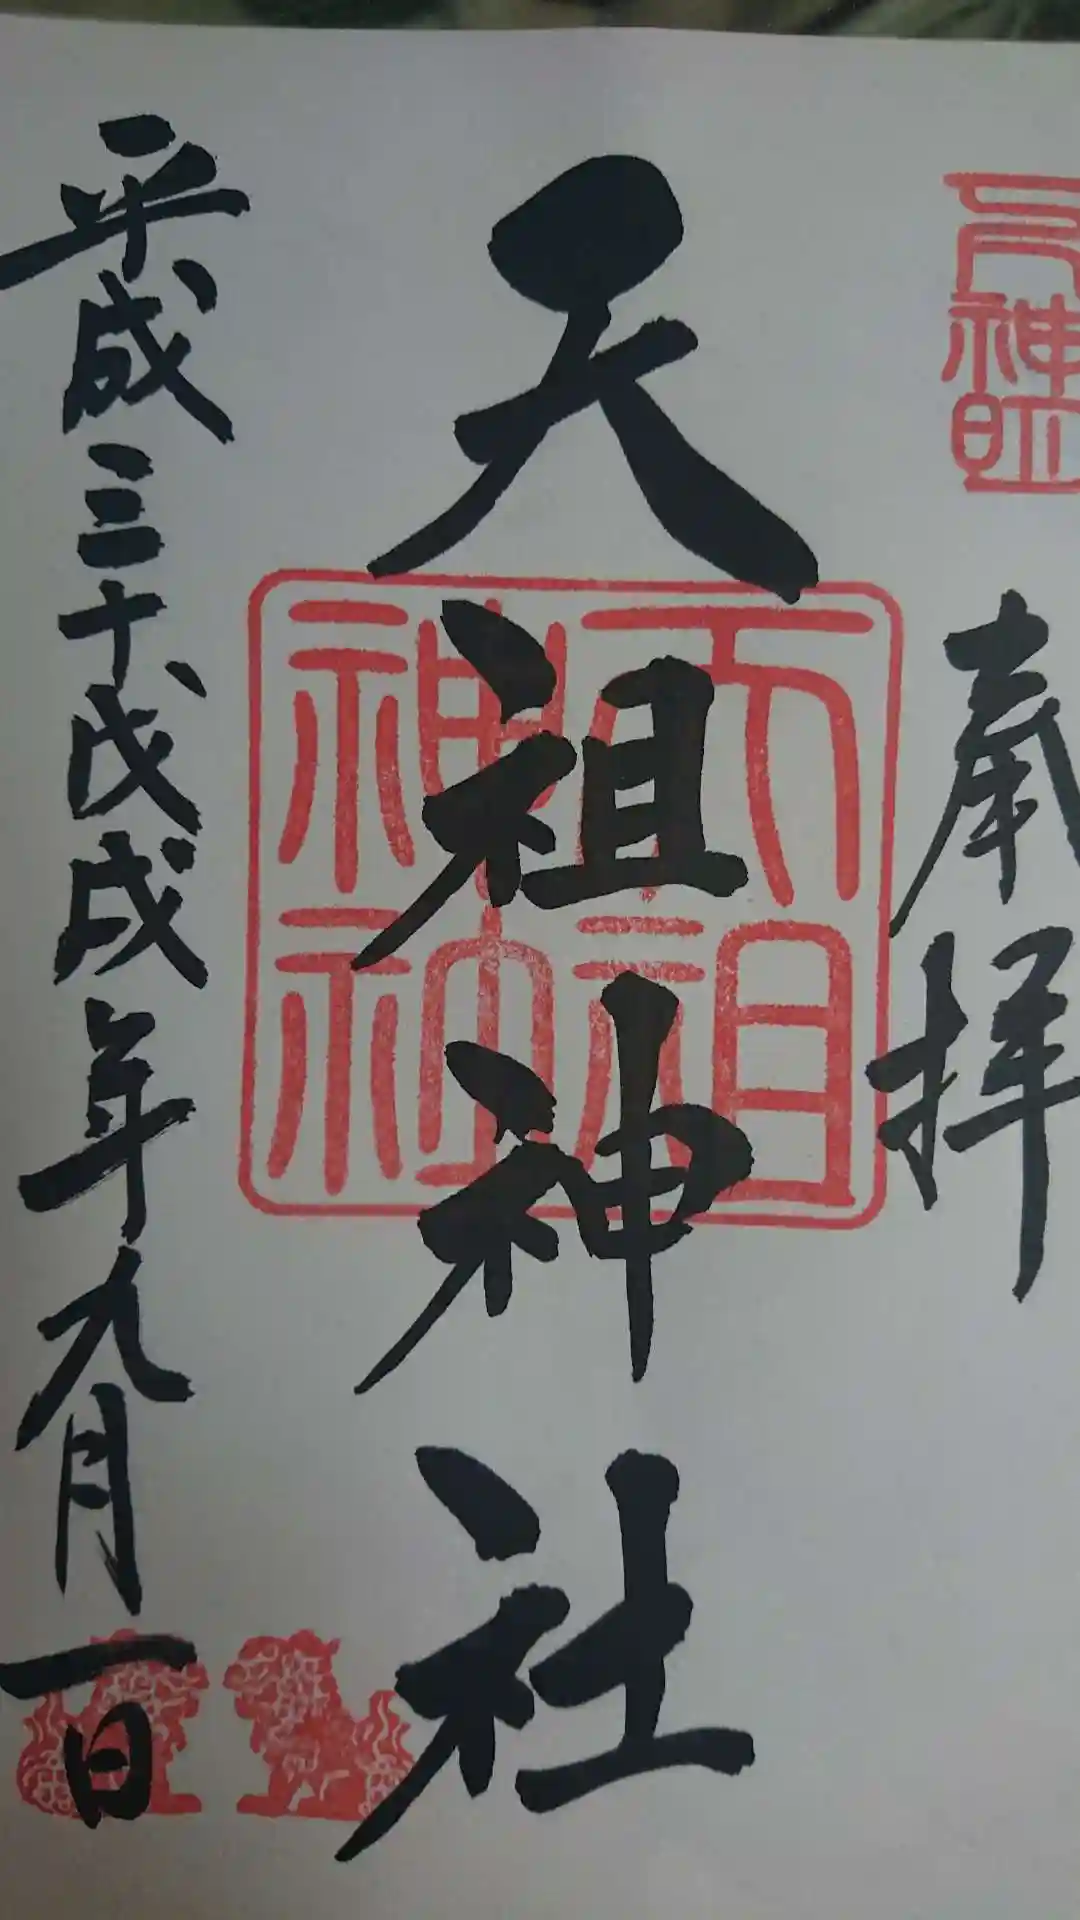 奉拝
天祖神社
平成三十戊戌年九月一日
天祖神社
元神明